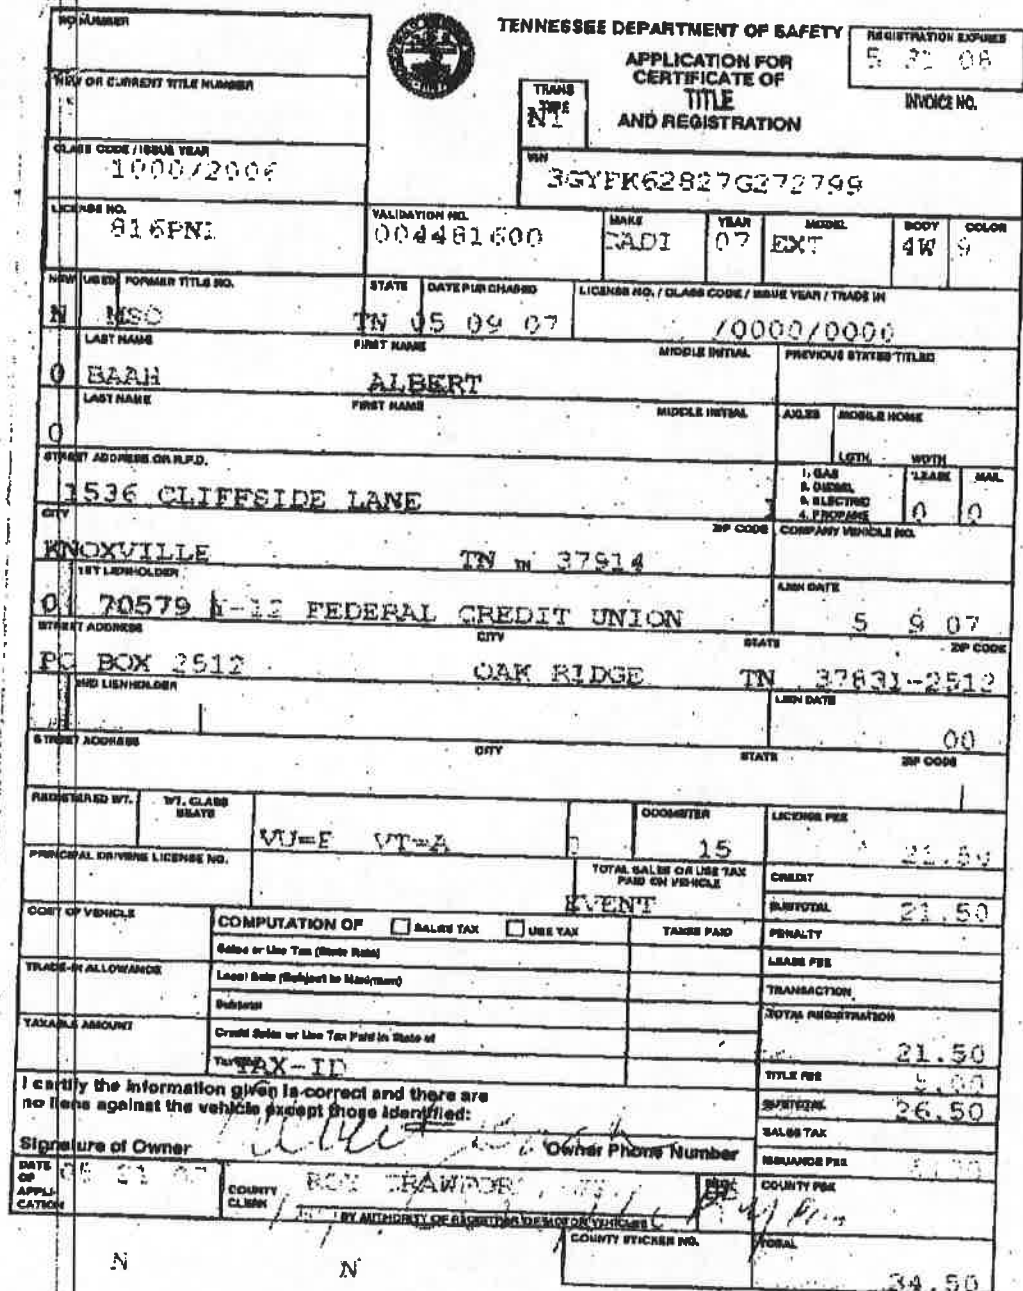 TENNESSEE DEPARTMENT OF SAFETY
REGISTRATION EXPIRES
5 31 08
APPLICATION FOR
CERTIFICATE OF
TITLE
AND REGISTRATION
INVOICE NO.
NEW OR CURRENT TITLE NUMBER
TRANS
TYPE
NT
CLASS CODE / ISSUE YEAR
1000/2006
VIN
3GYFK62827G272799
LICENSE NO.
816PNL
VALIDATION NO.
004481600
MAKE
CADI
YEAR
07
MODEL
EXT
BODY
4W
COLOR
9
NEW USED FORMER TITLE NO. STATE DATE PURCHASED LICENSE NO. / CLASS CODE / ISSUE YEAR / TRADE IN
N MSO TN 05 09 07 /0000/0000
LAST NAME FIRST NAME MIDDLE INITIAL PREVIOUS STATES TITLED
0 BAAH ALBERT
LAST NAME FIRST NAME MIDDLE INITIAL AXLES MOBILE HOME
0
LGTH. WDTH
STREET ADDRESS OR R.F.D.
1536 CLIFFSIDE LANE
1. GAS
2. DIESEL
3. ELECTRIC
4. PROPANE
LEASE
0
MAIL
0
CITY ZIP CODE COMPANY VEHICLE NO.
KNOXVILLE TN TN 37914
1ST LIENHOLDER LIEN DATE
01 70579 Y-12 FEDERAL CREDIT UNION 5 9 07
STREET ADDRESS CITY STATE ZIP CODE
PO BOX 2512 OAK RIDGE TN 37831-2512
2ND LIENHOLDER LIEN DATE
00
STREET ADDRESS CITY STATE ZIP CODE
REGISTERED WT. WT. CLASS
SEATS
ODOMETER LICENSE FEE
VU=P VT=A 15 21.50
PRINCIPAL DRIVERS LICENSE NO.
TOTAL SALES OR USE TAX
PAID ON VEHICLE
CREDIT
EVENT
SUBTOTAL 21.50
COST OF VEHICLE COMPUTATION OF SALES TAX USE TAX TAXES PAID PENALTY
Sales or Use Tax (State Rate)
LEASE FEE
TRADE-IN ALLOWANCE Local Rate (Subject to Maximum)
TRANSACTION
Subtotal
TOTAL REGISTRATION
TAXABLE AMOUNT Credit Sales or Use Tax Paid in State of
21.50
TAX-ID
TITLE FEE 5.00
I certify the information given is correct and there are
no liens against the vehicle except those identified:
SUBTOTAL 26.50
SALES TAX
Signature of Owner Owner Phone Number
ISSUANCE FEE
DATE
OF
APPLI-
CATION
05 21 07
COUNTY
CLERK
COUNTY FEE
BY AUTHORITY OF REGISTRAR OF MOTOR VEHICLES
COUNTY STICKER NO. TOTAL
N N
34.50